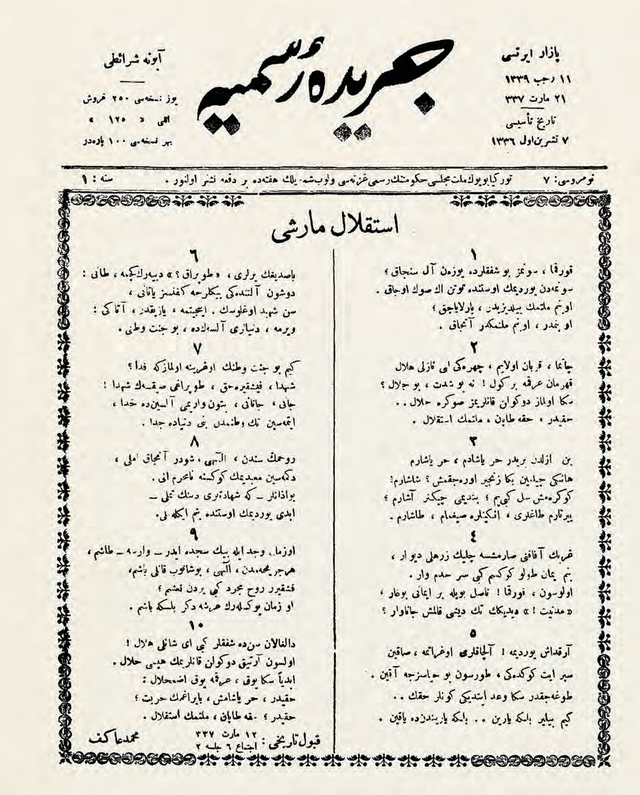 پازار ايرتسى
١١ رجب ١٣٣٩
٢١ مارت ٣٣٧
تاريخ تأسيسى
٧ تشرين اول ١٣٣٦
جريدهٔ رسميه
آبونه شرائطى
يوز نسخه‌سى ٢٥٠ غروش
اللى « ١٢٥ »
بهر نسخه‌سى ١٠٠ پاره‌در
نومروسى: ٧
توركيا بويوك ملت مجلسى حكومتنك رسمى غزته‌سى اولوب شمديلك هفته‌ده بر دفعه نشر اولنور .
سنه : ١
استقلال مارشى
١
قورقما ، سونمز بو شفقلرده يوزن آل سنجاق ؛
سونمه‌دن يورديمك اوستنده توتن اك صوك اوجاق .
او بنم ملتمك ييلديزيدر ، پارلاياجق ؛
او بنمدر ، او بنم ملتمكدر آنجاق .
٢
چاتما ، قربان اولايم ، چهره‌كى اى نازلى هلال
قهرمان عرقمه بر كول ! نه بو شدت ، بو جلال ؟
سكا اولماز دوكولن قانلريمز صوكره حلال . .
حقيدر ، حقه طاپان ، ملتمك استقلال .
٣
بن ازلدن بريدر حر ياشادم ، حر ياشارم
هانكى چيلغين بكا زنجير اوره‌جقمش ؟ شاشارم!
كوكره‌مش سل كبى‌يم ؛ بنديمى چيكنر آشارم ؛
ييرتارم طاغلرى ، انكينلره صيغمام ، طاشارم .
٤
غربك آفاقنى صارمشسه چليك زرهلى ديوار ،
بنم ايمان طولو كوكسم كبى سرحدم وار .
اولوسون ، قورقما ! ناصل بويله بر ايمانى بوغار ،
« مدنيت ! » ديديكك تك ديشى قالمش جاناوار ؟
٥
آرقداش يورديمه ! آلچاقلرى اوغراتمه ، صاقين
سپر ايت كوكده‌كى ، طورسون بو حياسزجه آقين .
طوغه‌جقدر سكا وعد ايتديكى كونلر حقك . .
كيم بيلير بلكه يارين . . بلكه ياريندن‌ده ياقين .
٦
باصديغك يرلرى ، « طوپراق ؟ » دييه‌رك كچمه ، طانى :
دوشون آلتنده‌كى بيكلرجه كفنسز ياتانى ،
سن شهيد اوغلوسك . اينجيتمه ، يازيقدر ، آتاكى :
ويرمه ، دنيالرى آلسه‌ك‌ده ، بو جنت وطنى .
٧
كيم بو جنت وطنك اوغرينه اولمازكه فدا ؟
شهدا ، فيشقيره‌جق ، طوپراغى صيقسه‌ك شهدا !
جانى ، جانانى ، بتون واريمى آلسين‌ده خدا ،
ايتمه‌سين تك وطنمدن بنى دنياده جدا .
٨
روحمك سندن ، الٓهى ، شودر آنجاق املى ،
دكمه‌سين معبديمك كوكسنه نامحرم الى .
بو اذانلر ــ كه شهادتلرى دينك تملى ــ
ابدى يورديمك اوستنده بنم ايكله‌لى.
٩
او زمان وجد ايله بيك سجده ايدر ــ وارسه ــ طاشم ،
هر جريحه‌مدن ، الٓهى ، بوشانوب قانلى ياشم،
فيشقيرر روح مجرد كبى يردن نعشم ؛
او زمان يوكسله‌رك عرشه دكر بلكه باشم .
١٠
دالغالان سن‌ده شفقلر كبى اى شانلى هلال !
اولسون آرتيق دوكولن قانلريمك هپسى حلال .
ابدياً سكا يوق ، عرقمه يوق اضمحلال :
حقيدر ، حر ياشامش ، بايراغمك حريت ؛
حقيدر ؛ حقه طاپان ، ملتمك استقلال .
قبول تاريخى : ١٢ مارت ٣٣٧
اجتماع ٦ جلسه ٢
محمد عاكف